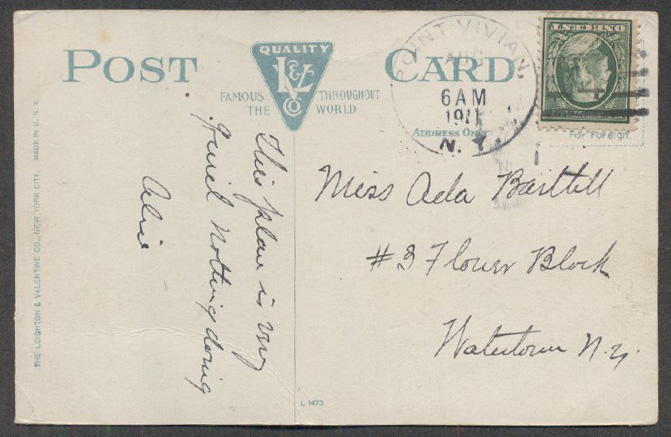 POST CARD
QUALITY
L&V
CO
FAMOUS THROUGHOUT
THE WORLD
POINT VIVIAN
AUG
6 AM
1911
N. Y.
ADDRESS ONLY
For Foreign.
MADE IN U.S.A.
THE LEIGHTON & VALENTINE CO., NEW YORK CITY.
This place is very
quiet Nothing doing
Alice
Miss Ada Barthell
#3 Flower Block
Watertown N.Y.
L-1473